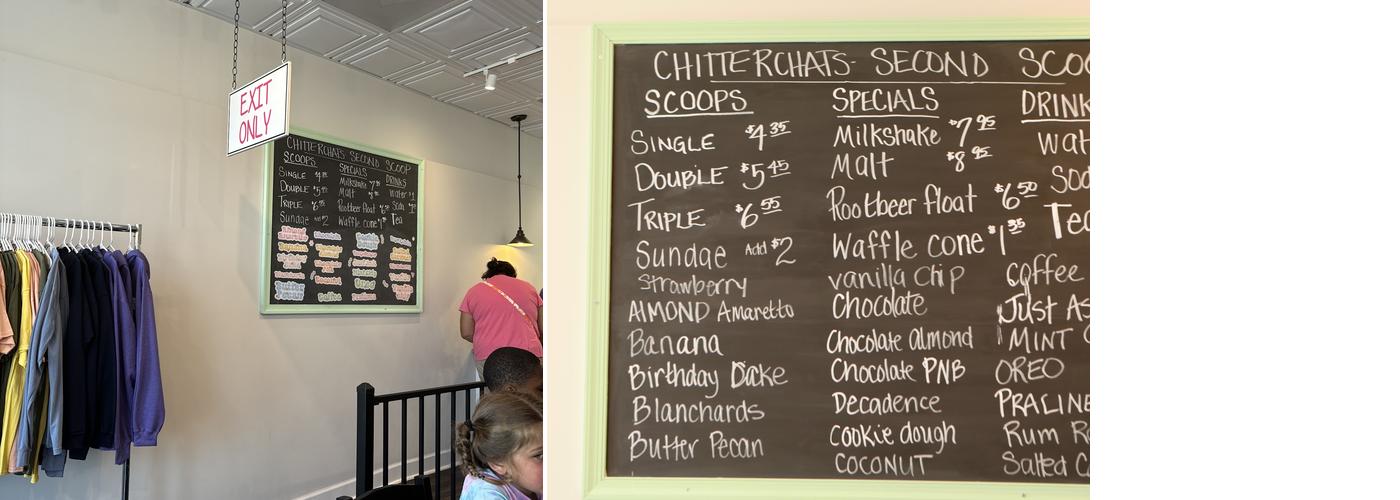 EXIT
ONLY
CHITTERCHATS SECOND SCOOP
SCOOPS
SINGLE
DOUBLE
TRIPLE
Sundae Add $2
SPECIALS
Milkshake
Malt
Rootbeer float
Waffle cone
DRINKS
Water $1
Soda
Tea
Butter
Pecan
Coffee
CHITTERCHATS- SECOND SCOO
SCOOPS
SINGLE $4.35
DOUBLE $5.45
TRIPLE $6.55
Sundae Add $2
Strawberry
AlMOND Amaretto
Banana
Birthday Cake
Blanchards
Butter Pecan
SPECIALS
Milkshake $7.95
Malt $8.95
Rootbeer float $6.50
Waffle cone $1.35
vanilla chip
Chocolate
Chocolate almond
Chocolate PNB
Decadence
cookie dough
COCONUT
DRINK
wat
Sod
Tea
coffee
Just As
MINT C
OREO
PRALINE
Rum R
Salted C